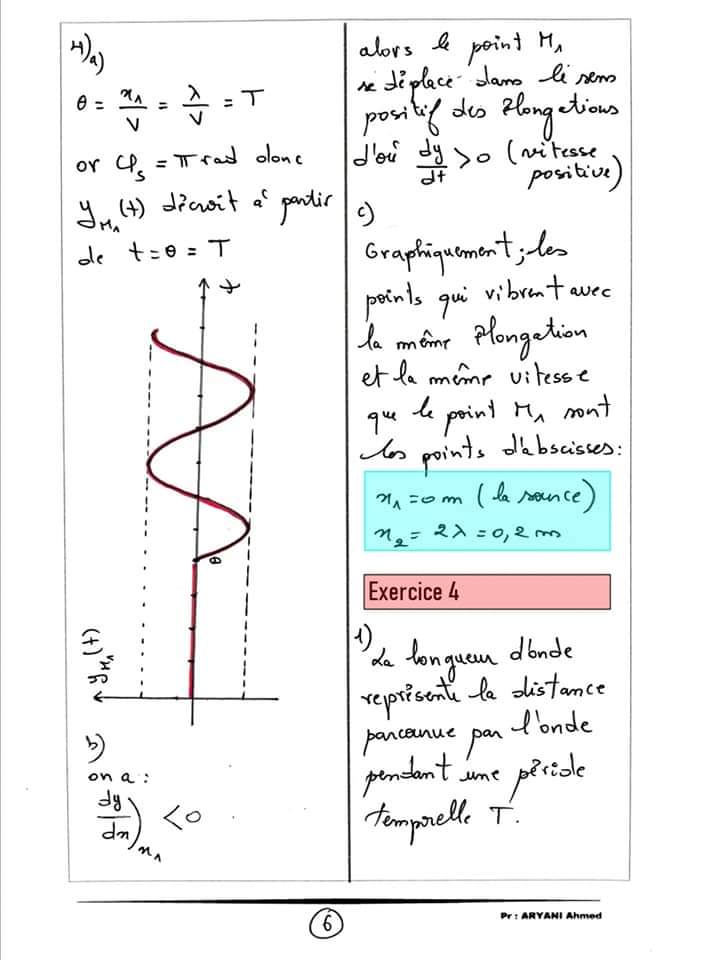 4)a)
θ = x₁/V = λ/V = T
or φₛ = π rad donc
y_M₁(t) décroit à partir
de t = θ = T
t
θ
y_M₁(t)
b)
on a :
dy/dx)x₁ < 0
alors le point M₁
se déplace dans le sens
positif des élongations
d'où dy/dt > 0 (vitesse
positive)
c)
Graphiquement ; les
points qui vibrent avec
la même élongation
et la même vitesse
que le point M₁ sont
les points d'abscisses :
x₁ = 0 m (la source)
x₂ = 2λ = 0,2 m
Exercice 4
1)
La longueur d'onde
représente la distance
parcourue par l'onde
pendant une période
temporelle T.
6
Pr : ARYANI Ahmed